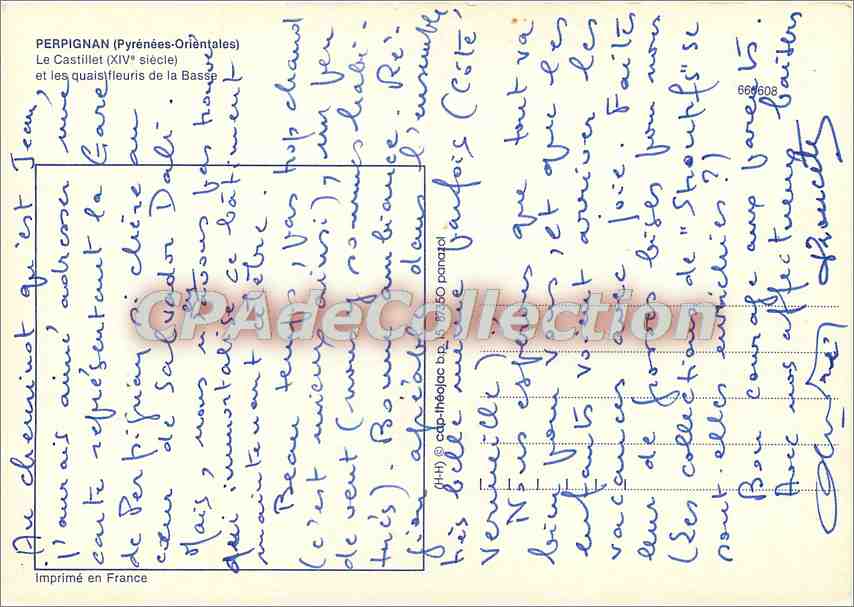 PERPIGNAN (Pyrénées-Orientales)
Le Castillet (XIVe siècle)
et les quais fleuris de la Basse
666608
Au cheminot qu'est Jean,
j'aurais aimé adresser une
carte représentant la Gare
de Perpignan si chère au
cœur de Salvador Dali.
Mais, nous n'avons pas trouvé
qui immortalise ce bâtiment
maintenant célèbre.
Beau temps, pas trop chaud
(c'est mieux ainsi), un peu
de vent (nous y sommes habi-
tués). Bonne ambiance. Ré-
gion agréable dans l'ensemble,
très belle même parfois (Côte
Vermeille)
Nous espérons que tout va
bien pour vous, et que les
enfants voient arriver les
vacances avec joie. Faites
leur de grosses bises pour nous
(les collections de "Stroumfs" se
sont-elles enrichies ?)
Bon courage aux parents.
Avec nos affectueux baisers
André
(H-H) © cap-théojac b.p. 15 87350 panazol
Imprimé en France
CPAdeCollection